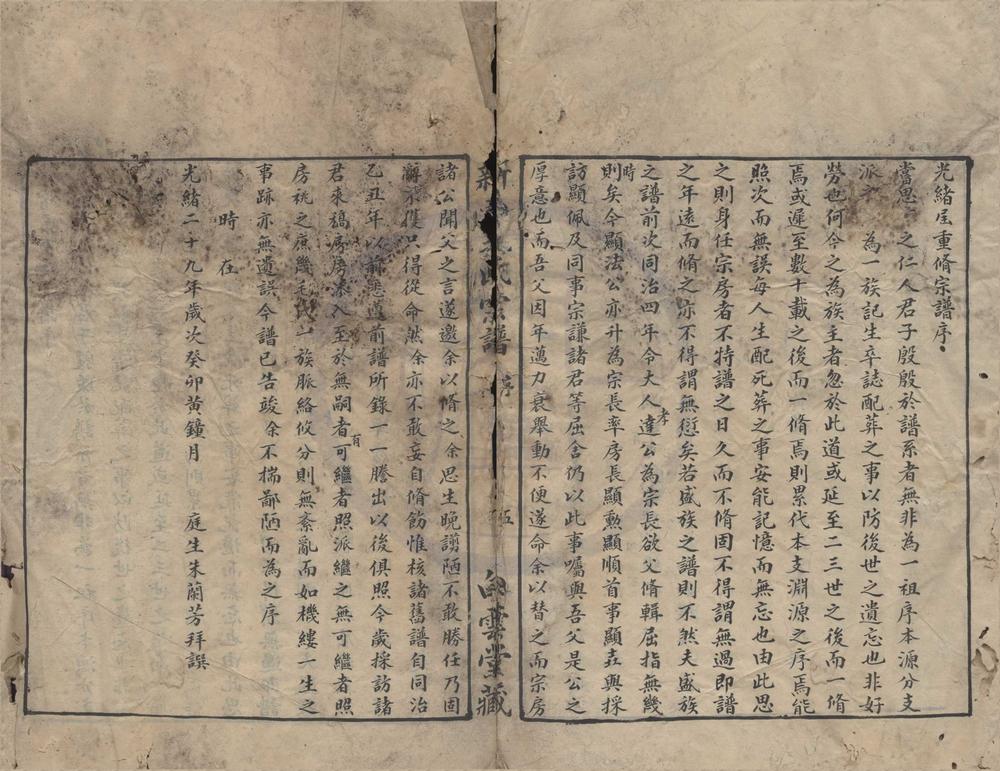 光緒重脩宗譜序
嘗思之仁人君子殷殷於譜系者無非為一祖序本源分支
派為一族記生卒誌配葬之事以防後世之遺忘也非好
勞也何今之為族主者忽於此道或延至二三世之後而一脩
焉或遲至數十載之後而一脩焉則累代本支淵源之序焉能
照次而無誤每人生配死葬之事安能記憶而無忘也由此思
之則身任宗房者不特譜之日久而不脩固不得謂無過即譜
之年遠而脩之亦不得謂無愆矣若盛族之譜則不然夫盛族
之譜前次同治四年令大人達孝公為宗長欲父脩輯屈指無幾
時則矣今顯法公亦升為宗長率房長顯勲顯順首事顯垚與採
訪顯佩及同事宗謙諸君等屈舍仍以此事囑與吾父是公之
厚意也而吾父因年邁力衰舉動不便遂命余以替之而宗房
新氏宗譜 序 五 白雲堂藏
諸公聞父之言遂邀余以脩之余思生晚謭陋不敢勝任乃固
辭不獲只得從命然余亦不敢妄自脩飭惟核諸舊譜自同治
乙丑年以前悉遵前譜所錄一一謄出以後俱照今歲採訪諸
君來稿房房添入至於無嗣者有可繼者照派繼之無可繼者照
房祧之庶幾毛氏一族脈絡攸分則無紊亂而如機縷一生之
事跡亦無遺誤今譜已告竣余不揣鄙陋而為之序
時在
光緒二十九年歲次癸卯黃鐘月 庭生朱蘭芳拜譔